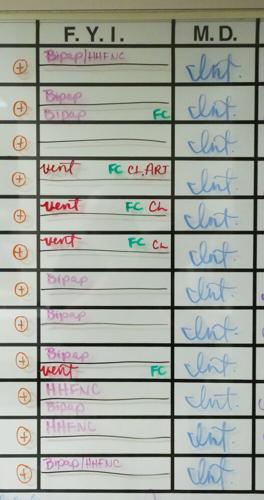 F. Y. I. M. D.
Bipap/HHFNC Int.
Bipap
Bipap FC Int.
Int.
vent FC CL, ART Int.
vent FC CL Int.
vent FC CL Int.
Bipap Int.
Bipap Int.
Bipap
vent FC Int.
HHFNC
Bipap Int.
HHFNC Int.
Bipap/HHFNC Int.